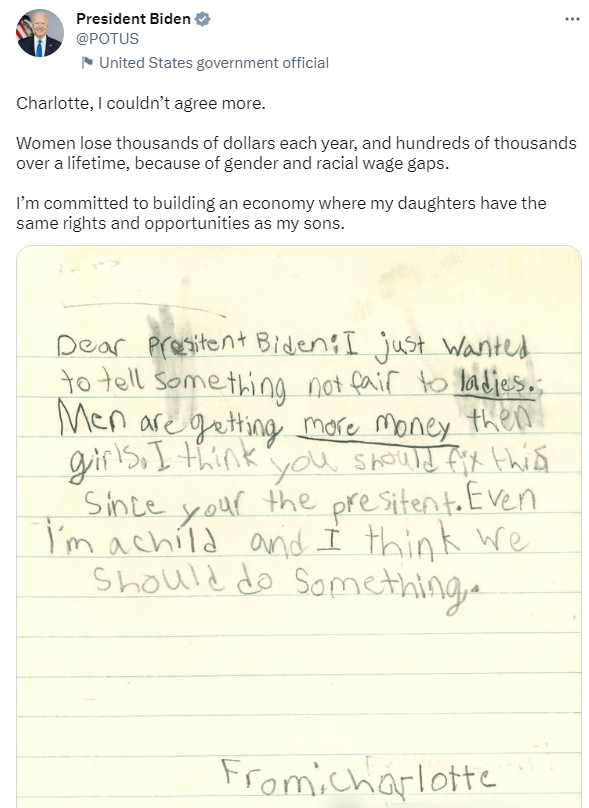 President Biden
@POTUS
United States government official
Charlotte, I couldn't agree more.
Women lose thousands of dollars each year, and hundreds of thousands
over a lifetime, because of gender and racial wage gaps.
I'm committed to building an economy where my daughters have the
same rights and opportunities as my sons.
Dear Presitent Biden: I just wanted
to tell something not fair to ladies.
Men are getting more money then
girls. I think you should fix this
Since your the presitent. Even
I'm a child and I think we
Should do Something.
From: charlotte